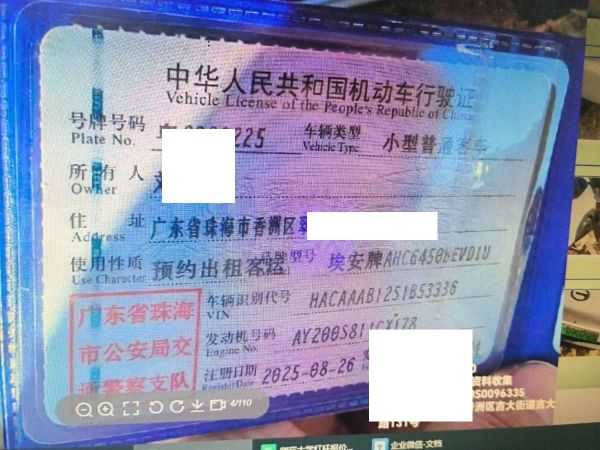 中华人民共和国机动车行驶证
Vehicle License of the People's Republic of China
号牌号码 225 车辆类型 小型普通客车
Plate No. Vehicle Type
所有人 刘
Owner
住址 广东省珠海市香洲区翠
Address
使用性质 预约出租客运 品牌型号 埃安牌AHC6450BEVD1U
Use Character
广东省珠海
市公安局交
通警察支队
车辆识别代号 HACAAAB12S1B53336
VIN
发动机号码 AY200S811CX128
Engine No.
注册日期 2025-08-26
Register Date
4/110
资料收集
0S0096335
洲区吉大街道吉大
路131号
企业微信-文档